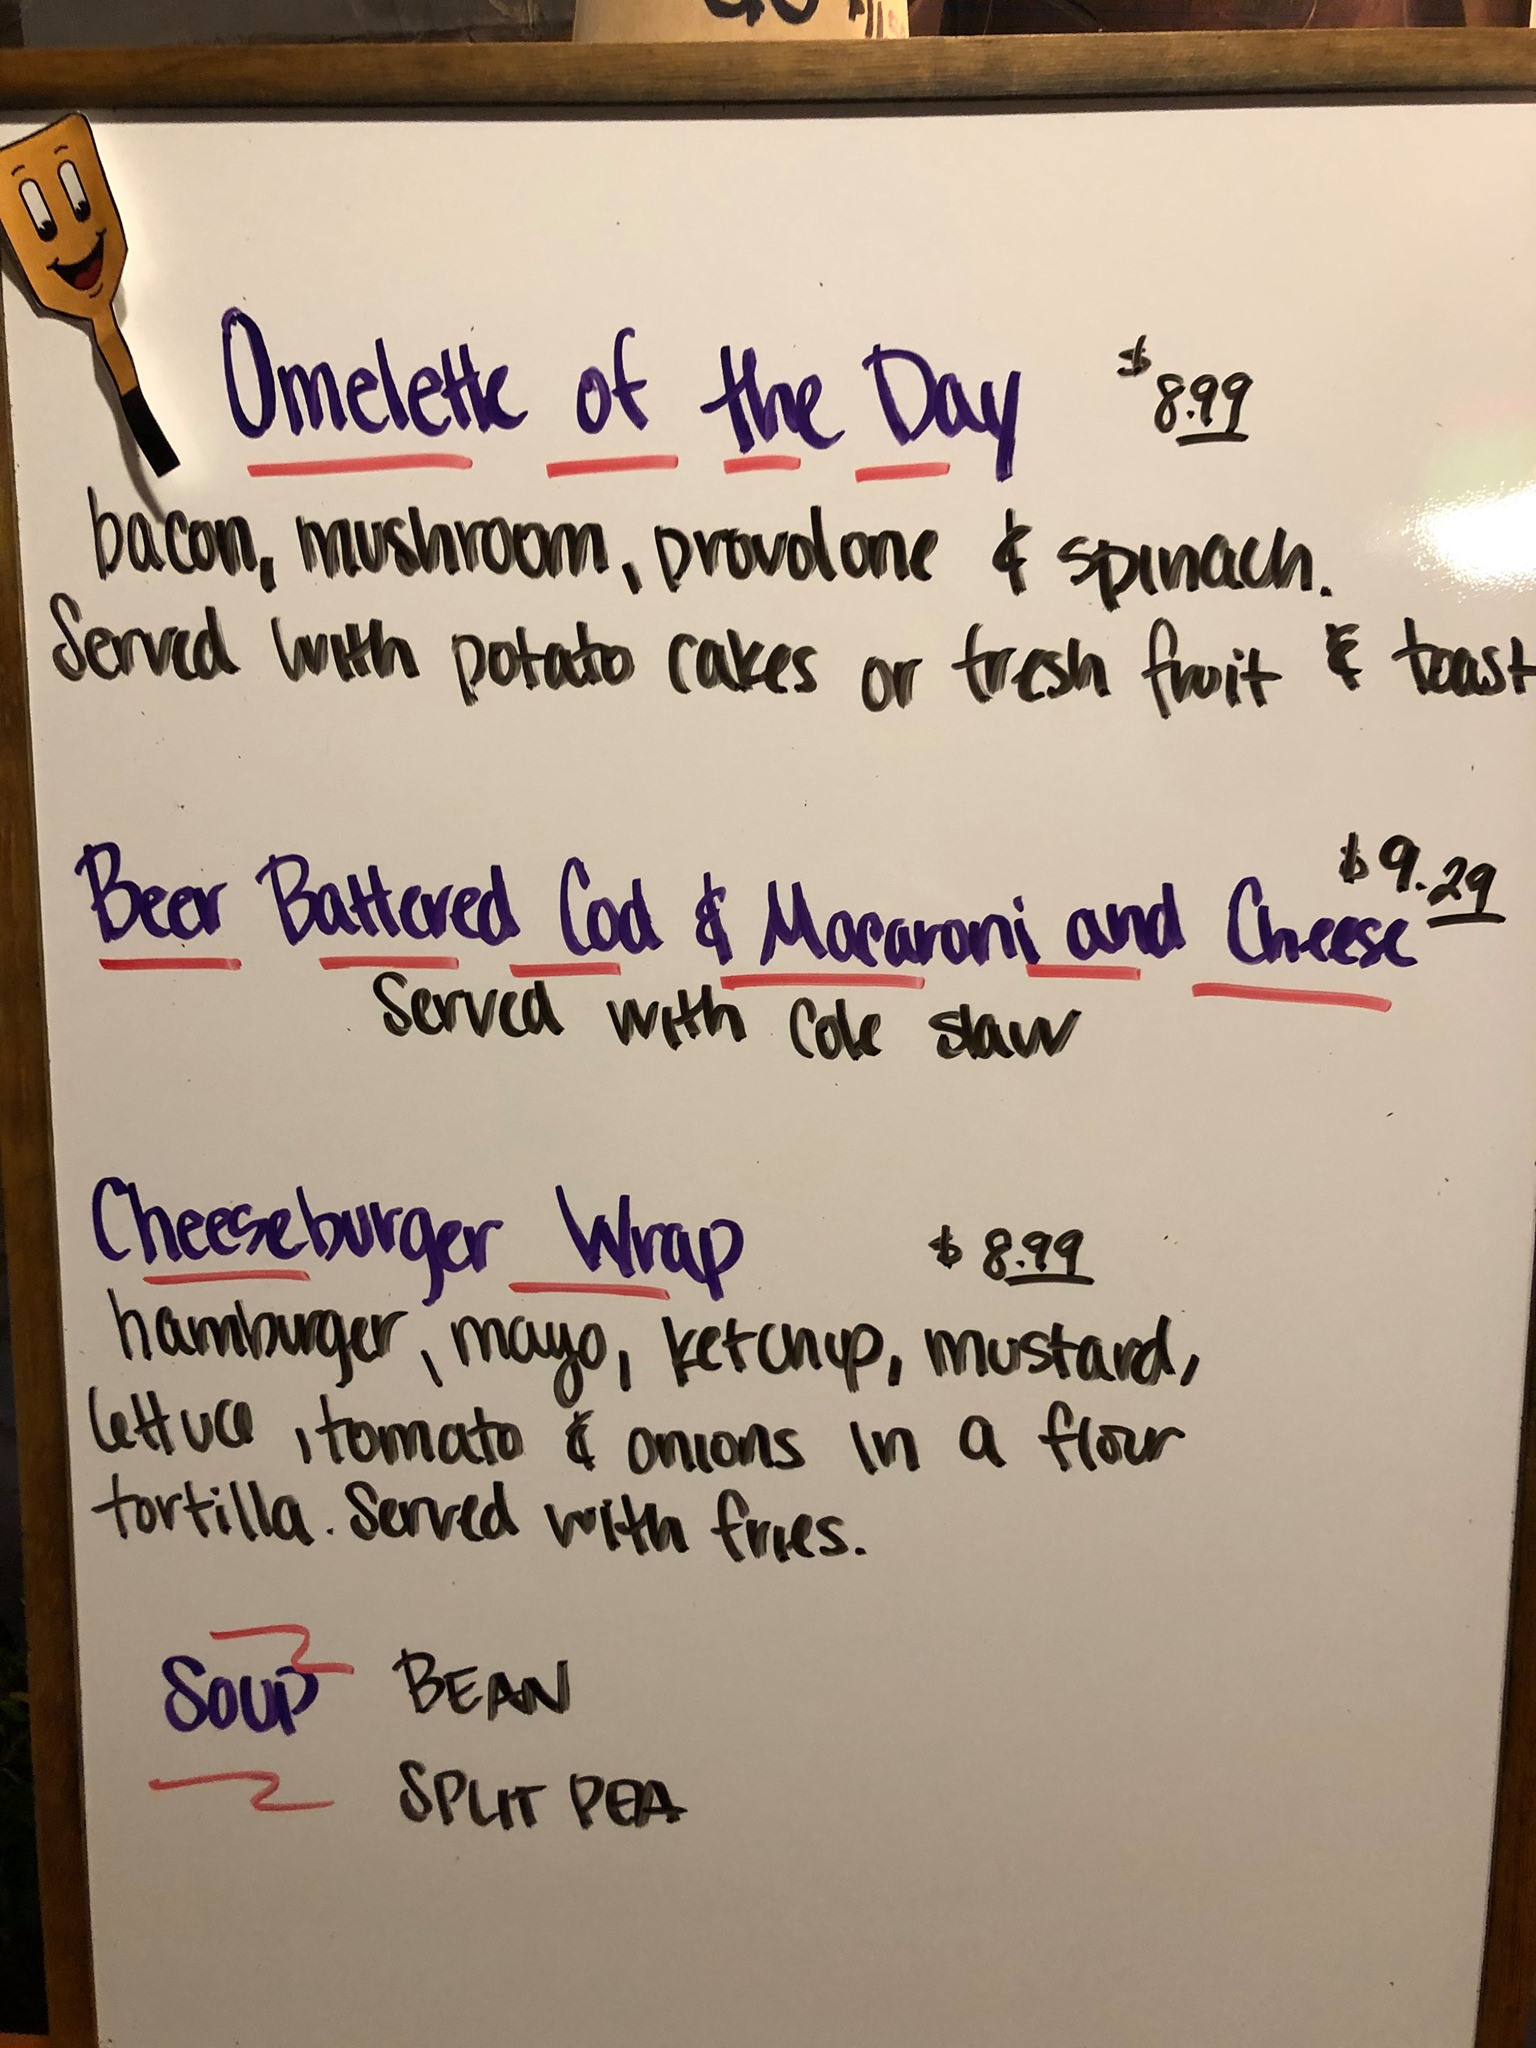 Omelette of the Day $8.99
bacon, mushroom, provolone & spinach.
Served with potato cakes or fresh fruit & toast
Beer Battered Cod & Macaroni and Cheese $9.29
Served with Cole slaw
Cheeseburger Wrap $8.99
hamburger, mayo, ketchup, mustard,
lettuce, tomato & onions in a flour
tortilla. Served with fries.
Soup BEAN
SPLIT PEA